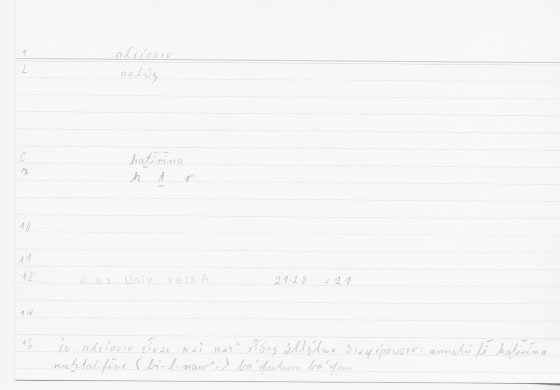 1 πλείοσιν
2 πολύς
6 kaṯīrīna
7 k ṯ r
10
11
12 A.os Univ versA 21.28 = 21
14
16 ἐν πλείοσιν εἶναι καὶ κατ' εἶδος ἀλλήλων διαφέρωσιν: annahū fī kaṯīrīna
muḫtalifīna (bi-l-nawʿi) baʿḍuhum baʿḍan